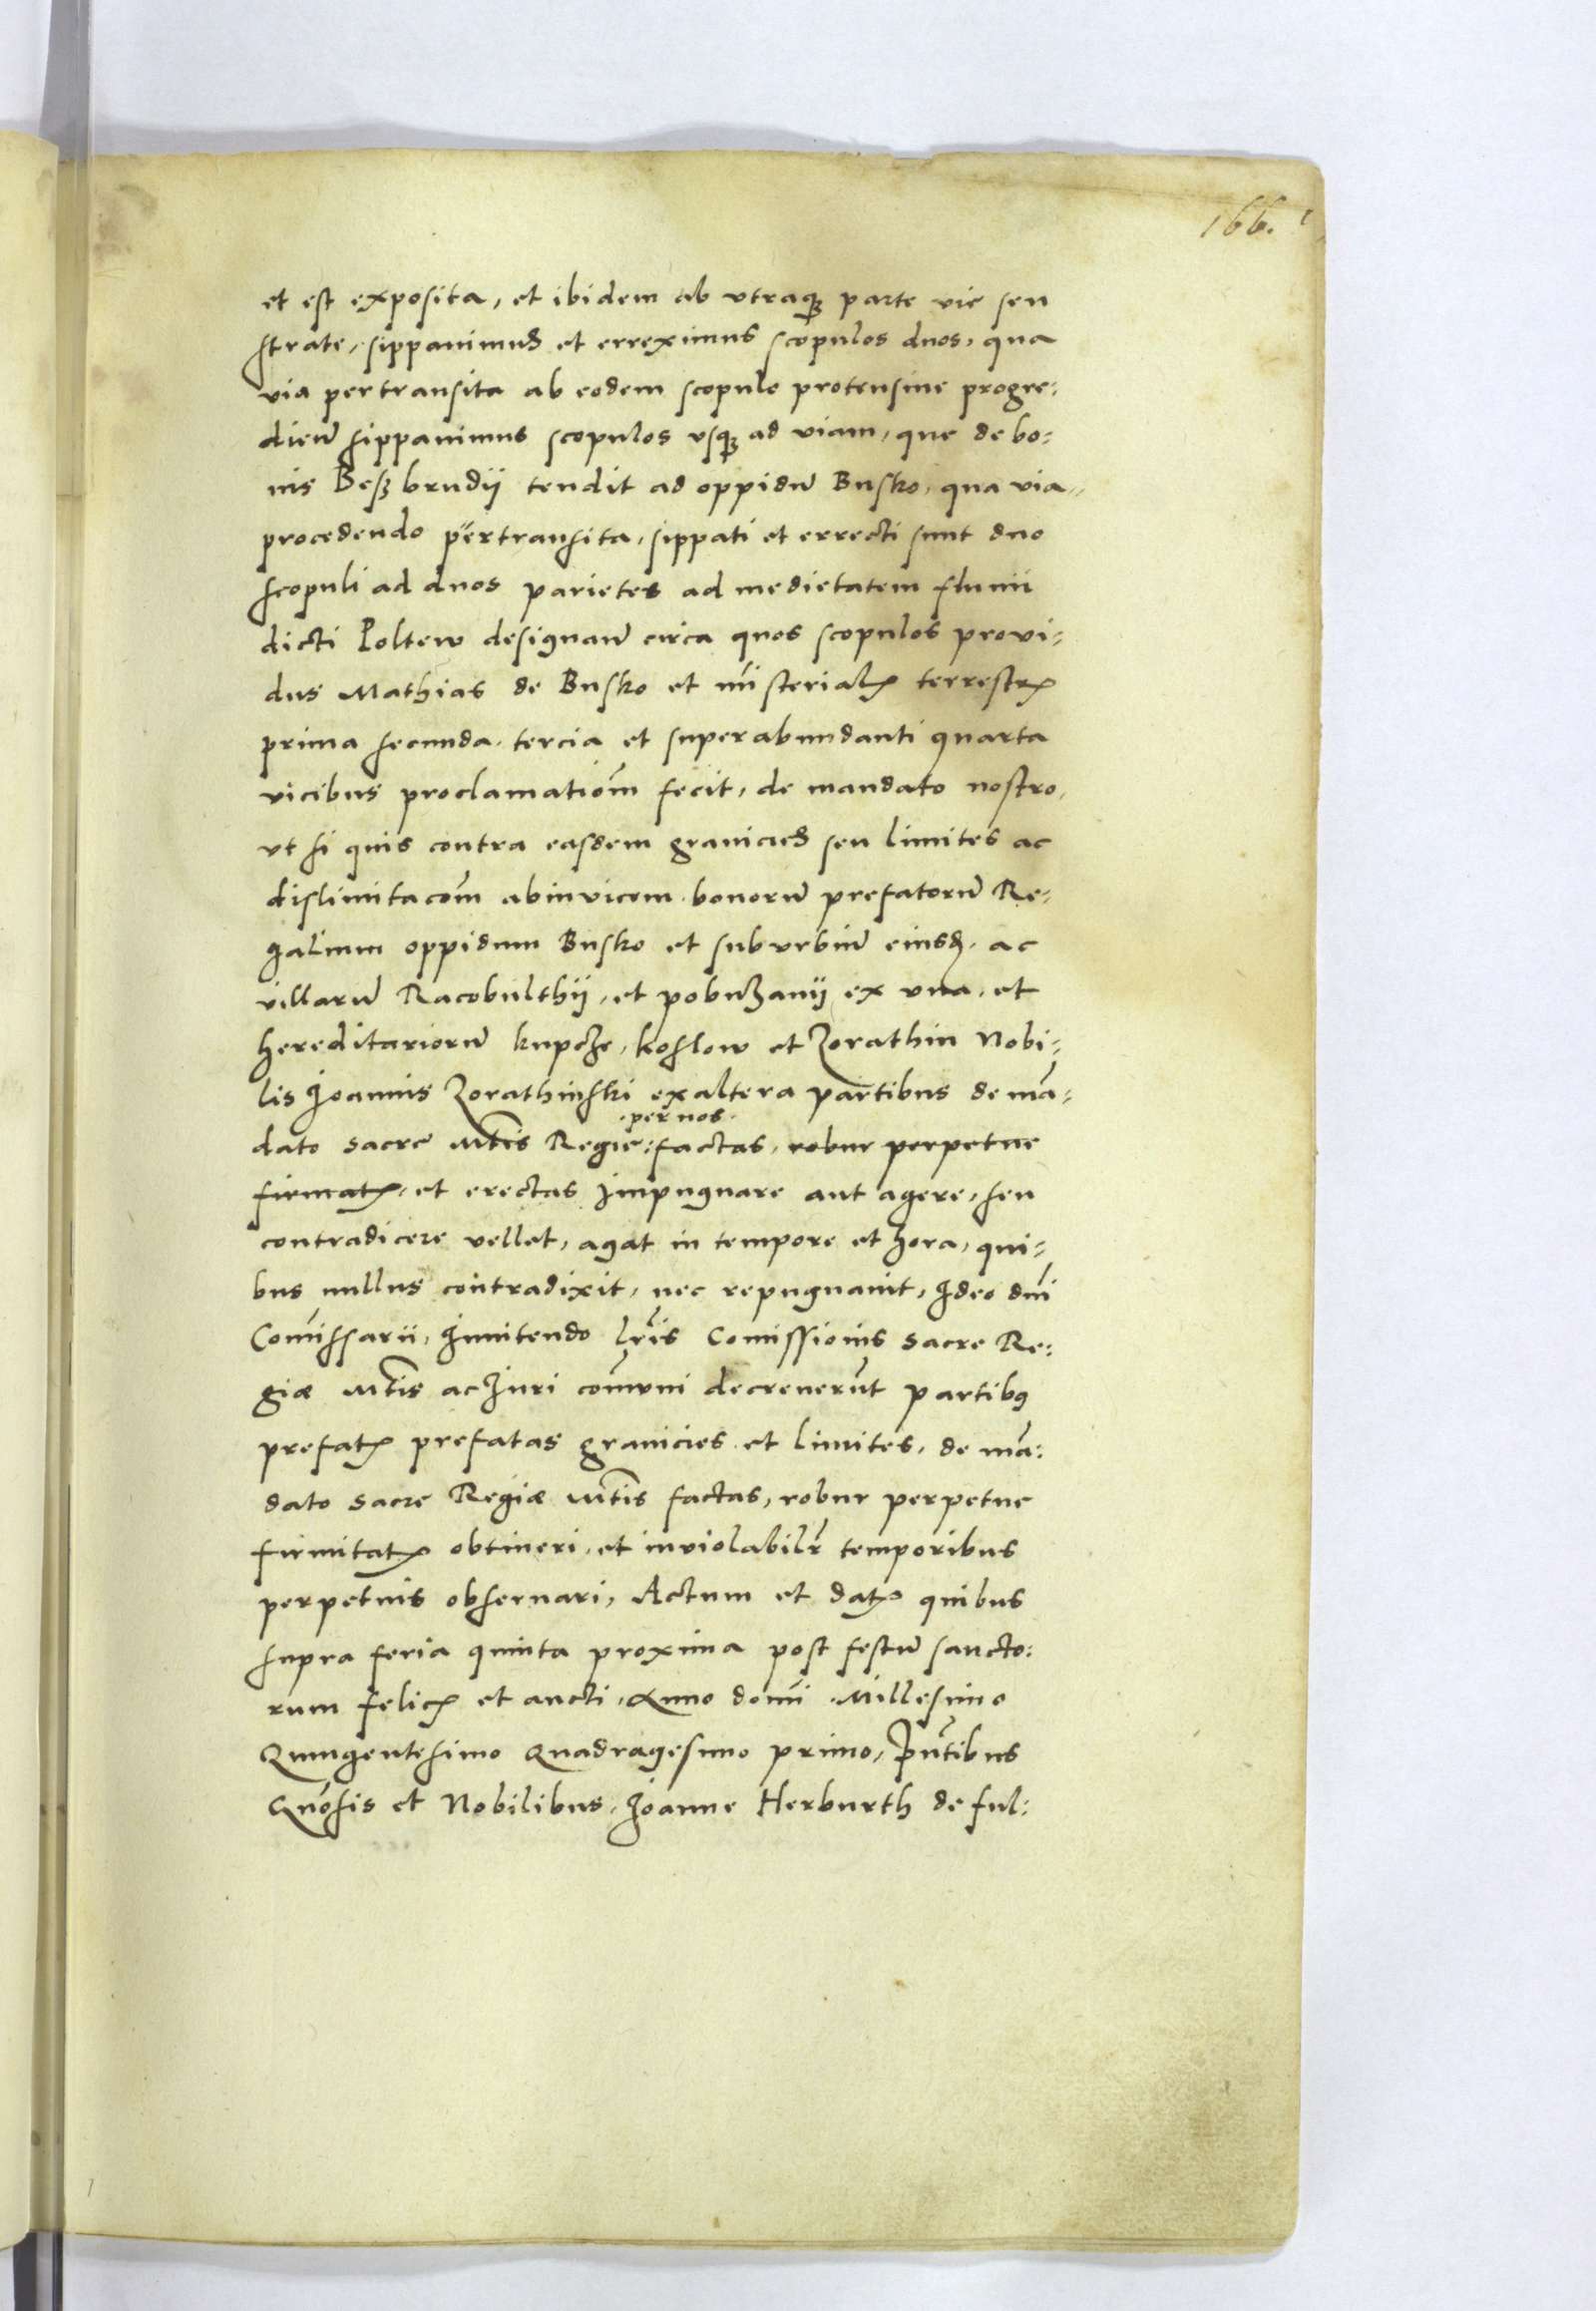 166.
et est exposita, et ibidem ab vtraqȝ parte vie seu
strate, sippauimus et erreximus scopulos duos, qua
via pertransita ab eodem scopulo protensiue progre:
dieñ sippauimus scopulos vsqȝ ad viam, que de bo:
nis Beszbrudij tendit ad oppidū Busko, qua via
procedendo pertransita, sippati et errecti sunt duo
scopuli ad duos parietes ad medietatem fluuii
dicti Poltew designañ circa quos scopulos proui:
dus Mathias de Busko et mīsterialꝭ terrestrꝭ
prima secunda, tercia et superabundanti quarta
vicibus proclamatiōm fecit, de mandato nostro,
vt si quis contra easdem granicies seu limites ac
dislimitacōm abinuicem bonorū prefatorū Re:
galium oppidum Busko et suburbiū eiusdꝭ, ac
villarū Racobulthij, et pobuzanij ex vna, et
hereditariorū kupcze, koslow et Zorathin Nobi:
lis Joannis Zorathinski ex altera partibus de mā:
· per nos ·
dato sacre Mt̄is Regie: factas, robur perpetue
firmatꝭ, et erectas impugnare aut agere, seu
contradicere vellet, agat in tempore et hora, qui:
bus nullus contradixit, nec repugnauit, Ideo dnī
Com̄issarii, Innitendo lr̄is Comissionis sacre Re:
giæ Mt̄is ac Iuri com̄uni decreuerūt partibꝰ
prefatꝭ prefatas granicies et limites, de mā:
dato sacre Regiæ Mt̄is factas, robur perpetue
firmitatꝭ obtineri, et inuiolabilr̄ temporibus
perpetuis obseruari, Actum et datꝭ quibus
supra feria quinta proxima post festū sancto:
rum felicꝭ et aucti, Anno domī Millesimo
Quingentesimo Quadragesimo primo, Pn̄tibus
Gn̄osis et Nobilibus, Joanne Herburth de ful: